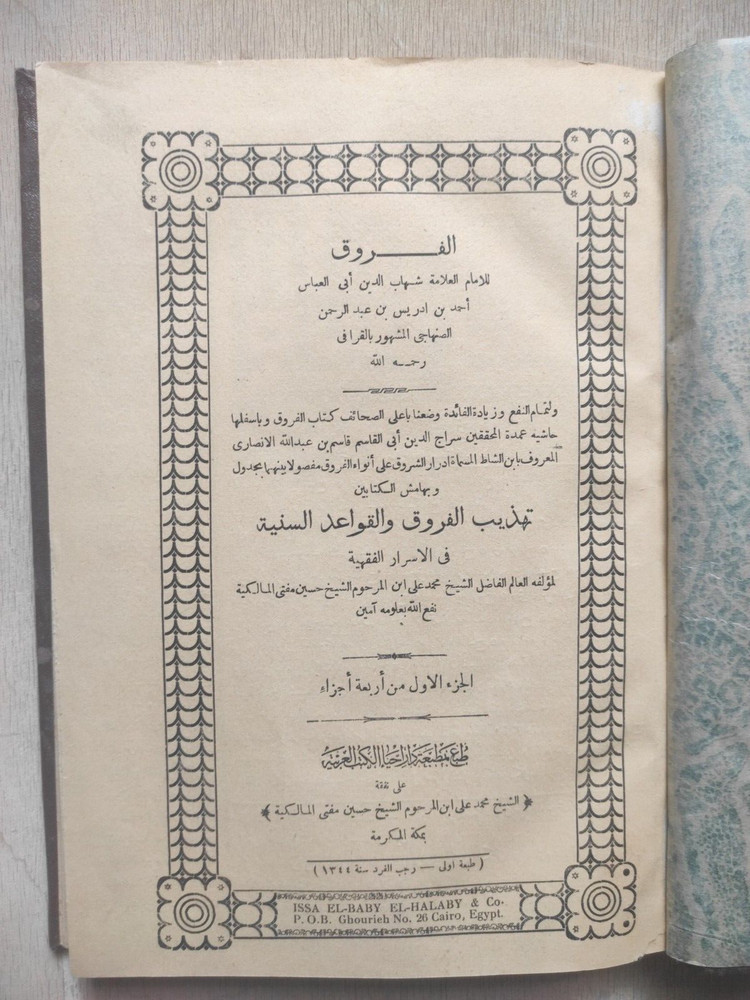 الفـــــروق
للامام العلامة شهاب الدين أبى العباس
أحمد بن ادريس بن عبد الرحمن
الصنهاجى المشهور بالقرافى
رحمه الله
ولتمام النفع وزيادة الفائدة وضعنا باعلى الصحائف كتاب الفروق وباسفلها
حاشية عمدة المحققين سراج الدين أبى القاسم قاسم بن عبدالله الانصارى
المعروف بابن الشاط المسماة ادرار الشروق على أنواء الفروق مفصولا بينهما بجدول
وبهامش الكتابين
تهذيب الفروق والقواعد السنية
فى الاسرار الفقهية
لمؤلفه العالم الفاضل الشيخ محمد على ابن المرحوم الشيخ حسين مفتى المالكية
نفع الله بعلومه آمين
الجزء الاول من أربعة أجزاء
طبع بمطبعة دار احياء الكتب العربية
على نفقة
﴿ الشيخ محمد على ابن المرحوم الشيخ حسين مفتى المالكية ﴾
بمكة المكرمة
( طبعة اولى — رجب الفرد سنة ١٣٤٤ )
ISSA EL-BABY EL-HALABY & Co.
P.O.B. Ghourieh No. 26 Cairo, Egypt.